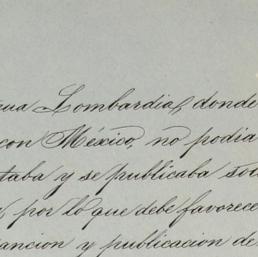 gua Lombardia, donde
con México, no podia
taba y se publicaba
, por lo que debe favorece
ancion y publicacion de